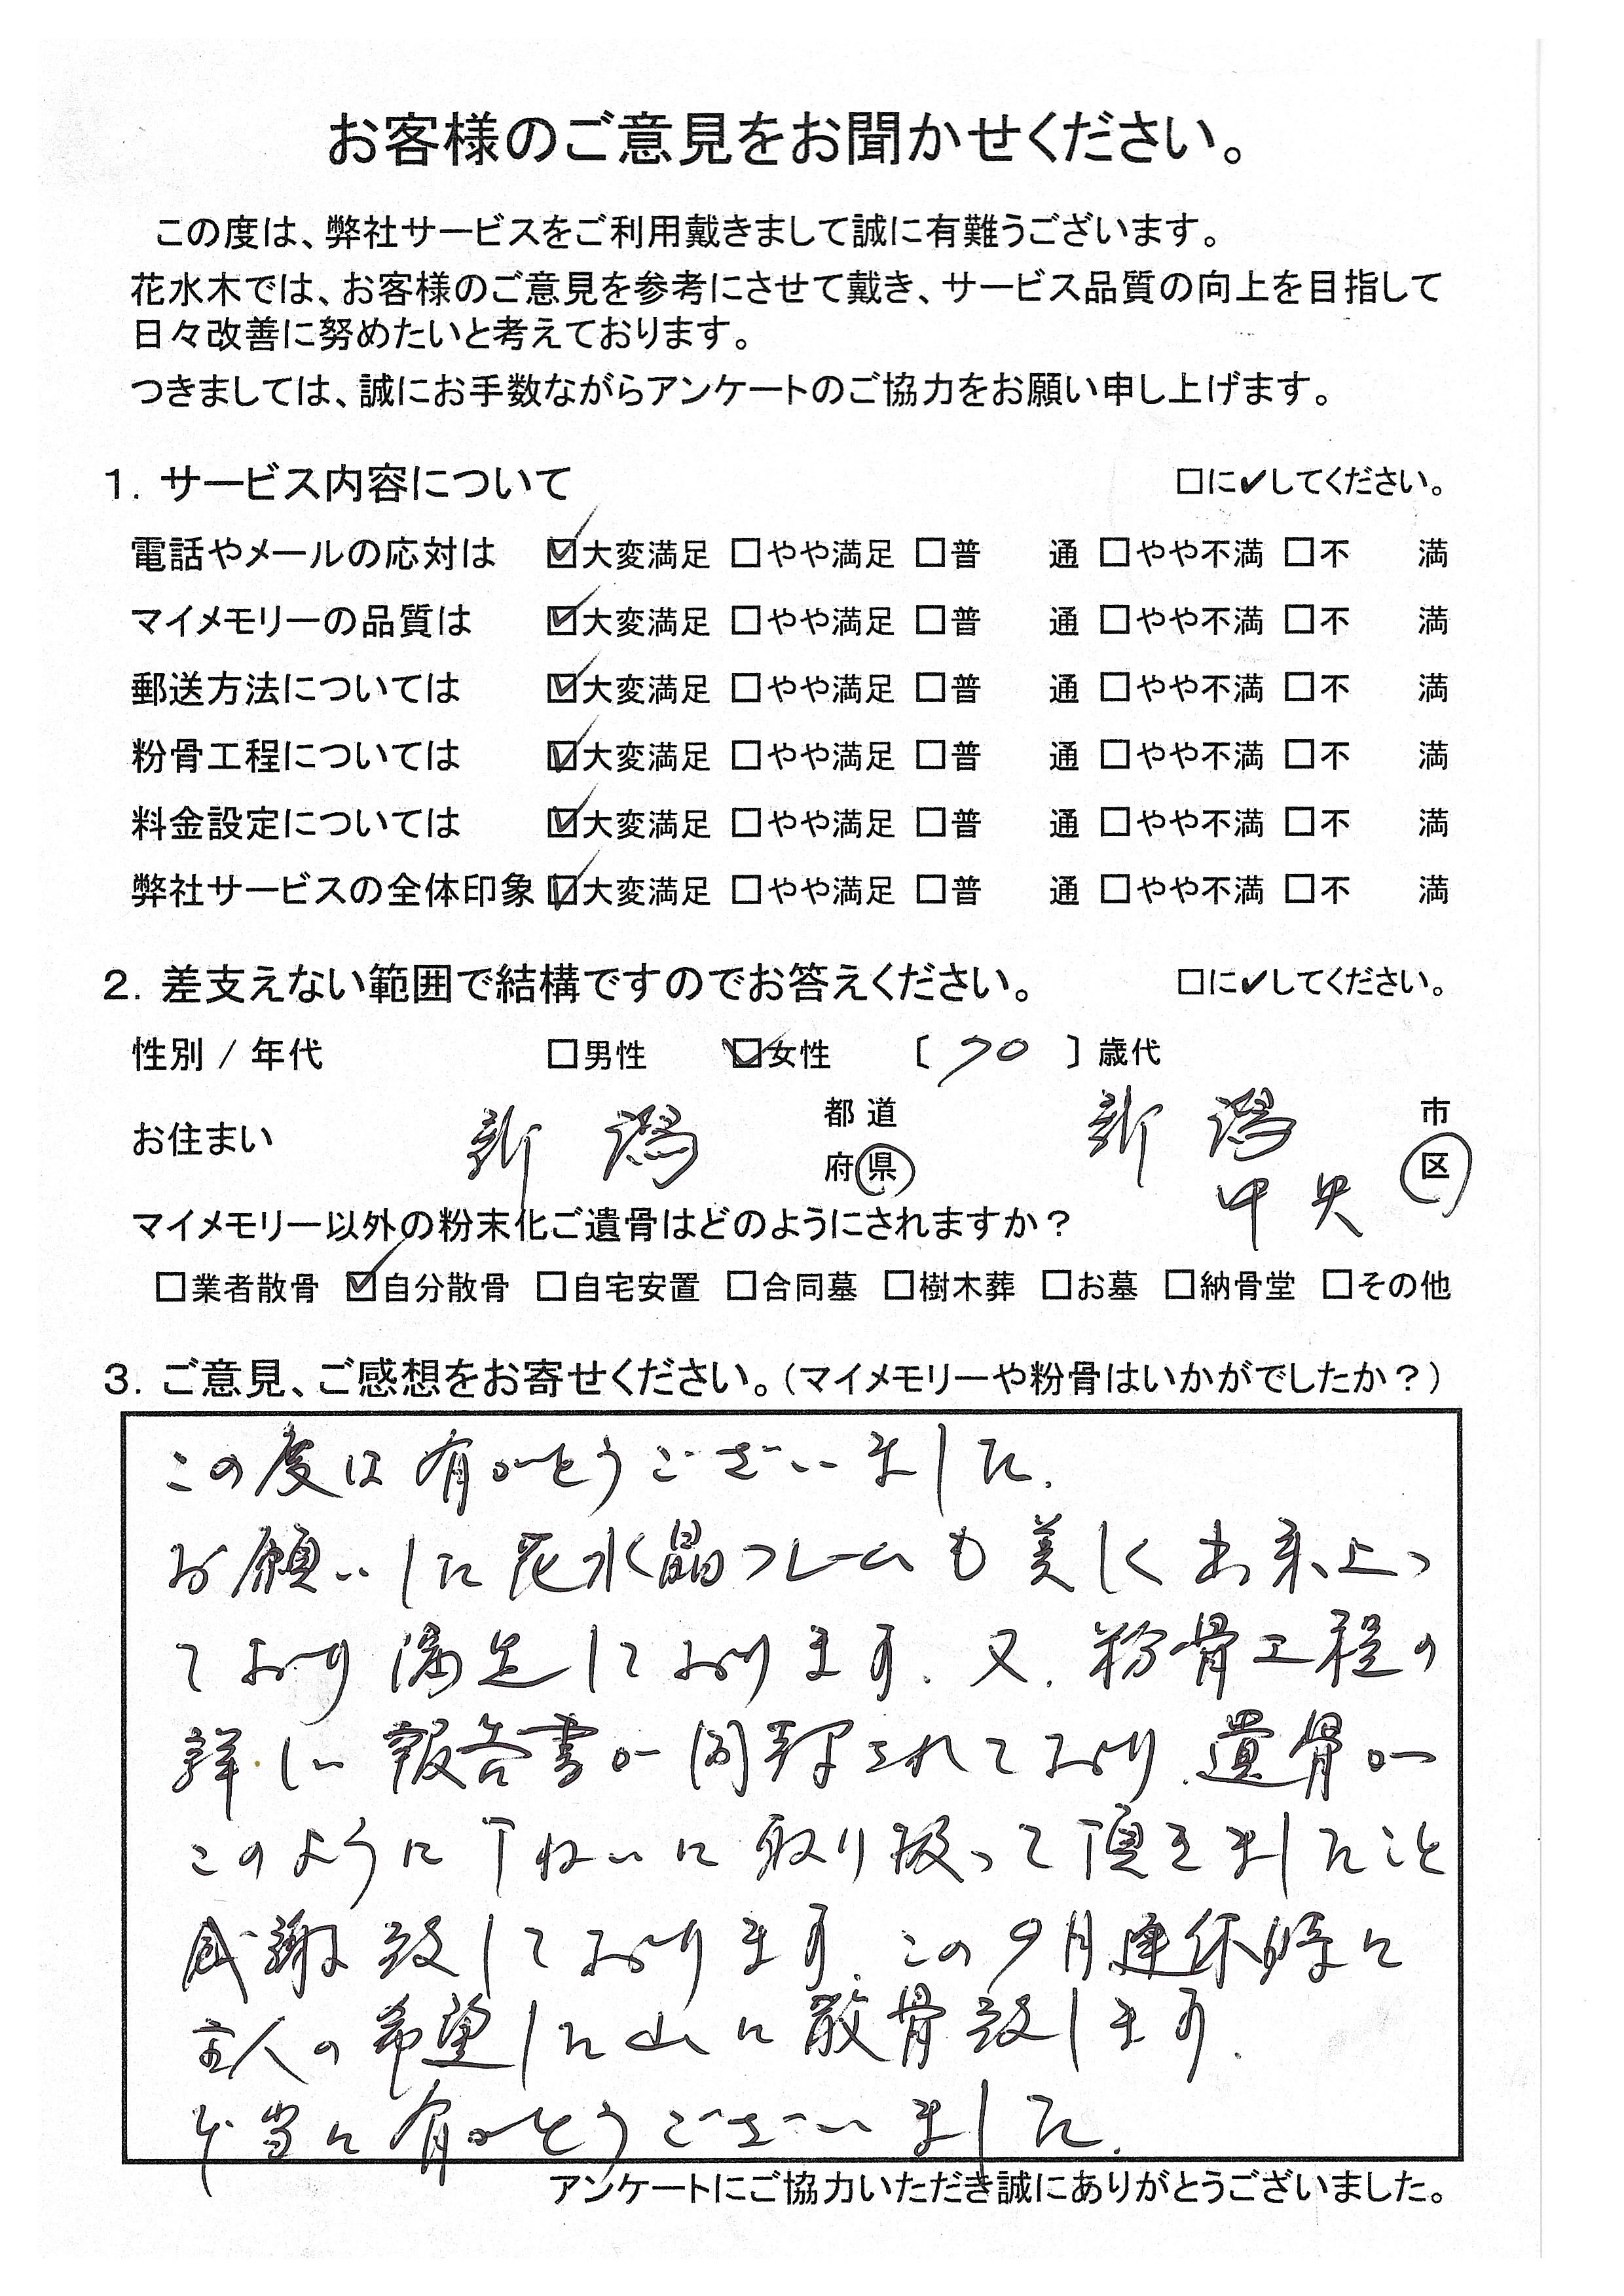 お客様のご意見をお聞かせください。
この度は、弊社サービスをご利用戴きまして誠に有難うございます。
花水木では、お客様のご意見を参考にさせて戴き、サービス品質の向上を目指して
日々改善に努めたいと考えております。
つきましては、誠にお手数ながらアンケートのご協力をお願い申し上げます。
1. サービス内容について □に✔してください。
電話やメールの応対は ☑大変満足 □やや満足 □普 通 □やや不満 □不 満
マイメモリーの品質は ☑大変満足 □やや満足 □普 通 □やや不満 □不 満
郵送方法については ☑大変満足 □やや満足 □普 通 □やや不満 □不 満
粉骨工程については ☑大変満足 □やや満足 □普 通 □やや不満 □不 満
料金設定については ☑大変満足 □やや満足 □普 通 □やや不満 □不 満
弊社サービスの全体印象 ☑大変満足 □やや満足 □普 通 □やや不満 □不 満
2. 差支えない範囲で結構ですのでお答えください。 □に✔してください。
性別 / 年代 □男性 ☑女性 〔 70 〕歳代
お住まい 新潟 都道府県 新潟 中央 市区
マイメモリー以外の粉末化ご遺骨はどのようにされますか？
□業者散骨 ☑自分散骨 □自宅安置 □合同墓 □樹木葬 □お墓 □納骨堂 □その他
3. ご意見、ご感想をお寄せください。（マイメモリーや粉骨はいかがでしたか？）
この度は有がとうございました.
お願いした花水晶フレームも美しく出来上っ
ており満足しております. 又. 粉骨工程の
詳しい報告書が同封されており. 遺骨が
このように丁ねいに取り扱って頂きましたこと
感謝致しております. この9月連休時に
主人の希望した山に散骨致します.
本当に有がとうございました.
アンケートにご協力いただき誠にありがとうございました。